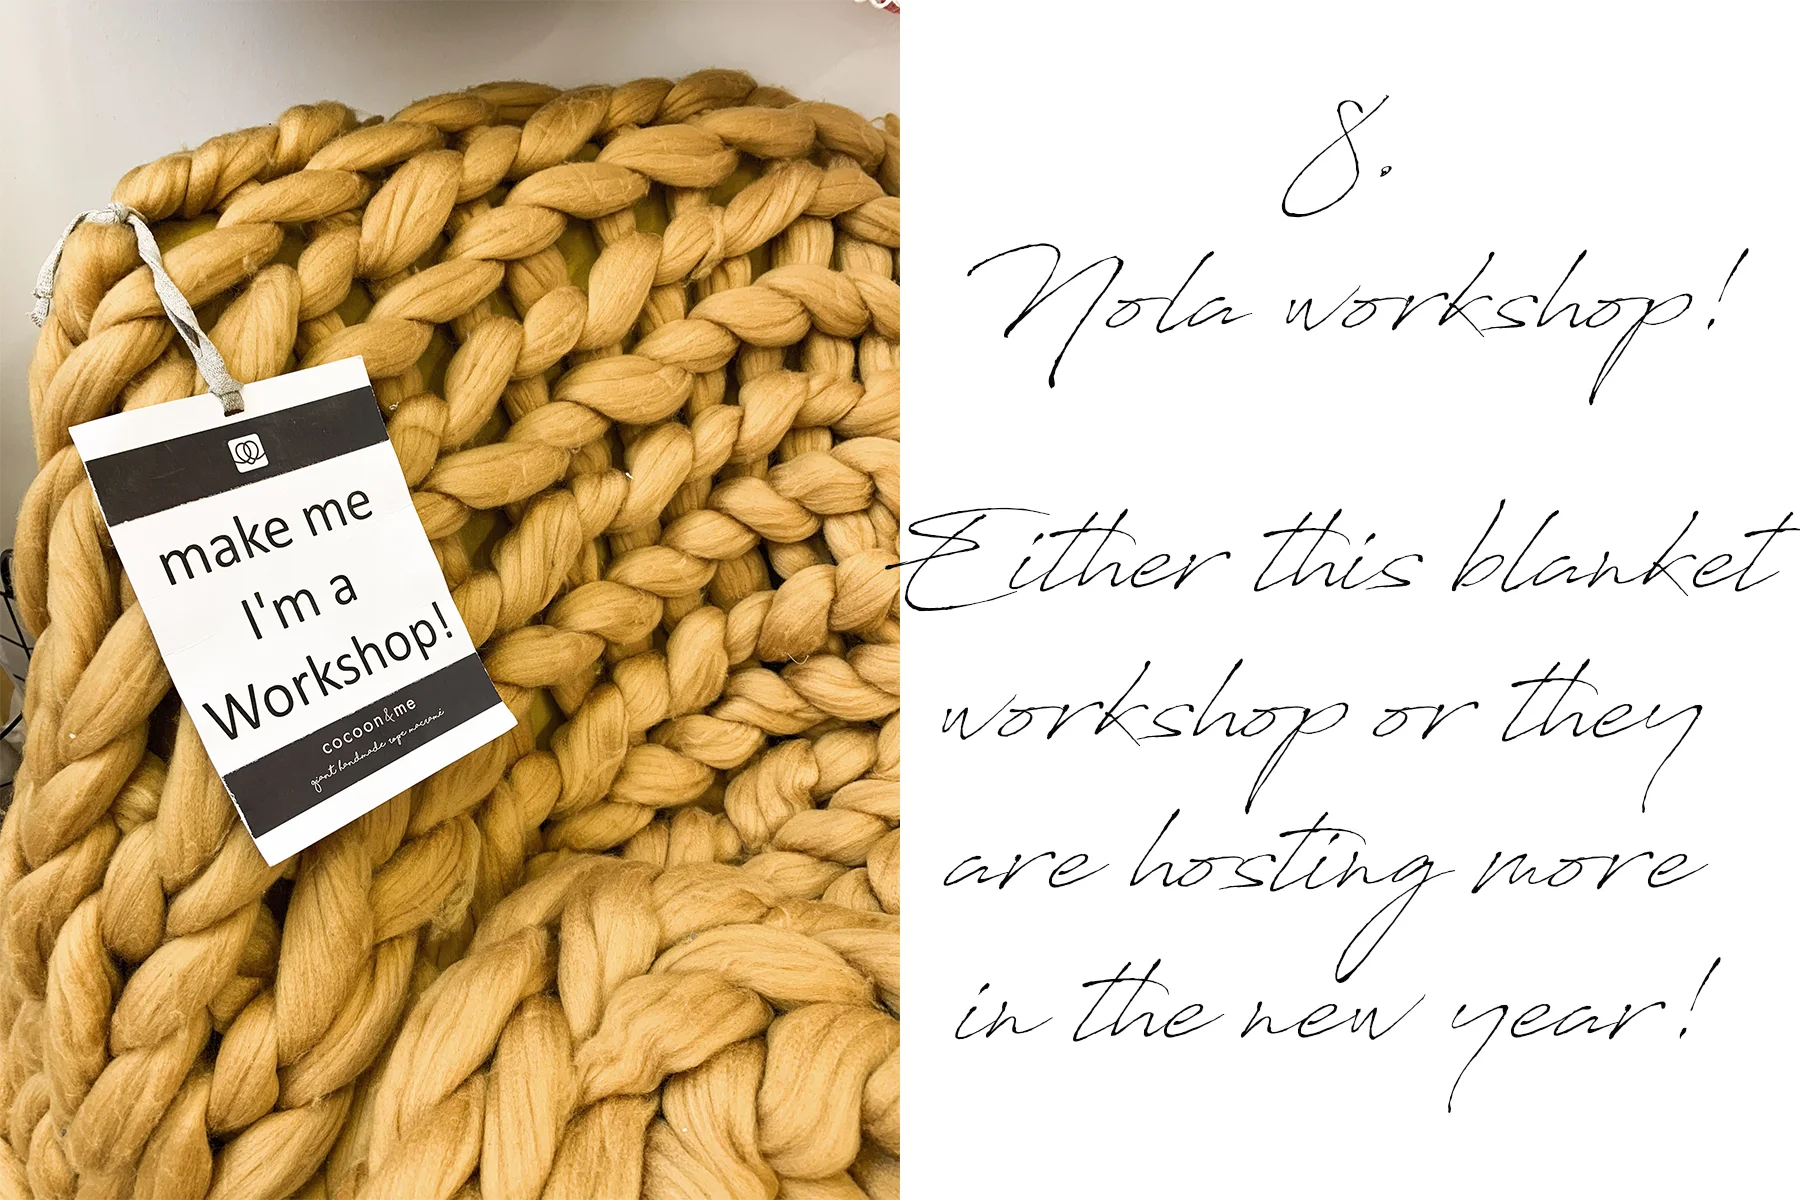 make me
I'm a
Workshop!
cocoon&me
giant handmade rope macramé
8.
Nola workshop!
Either this blanket
workshop or they
are hosting more
in the new year!